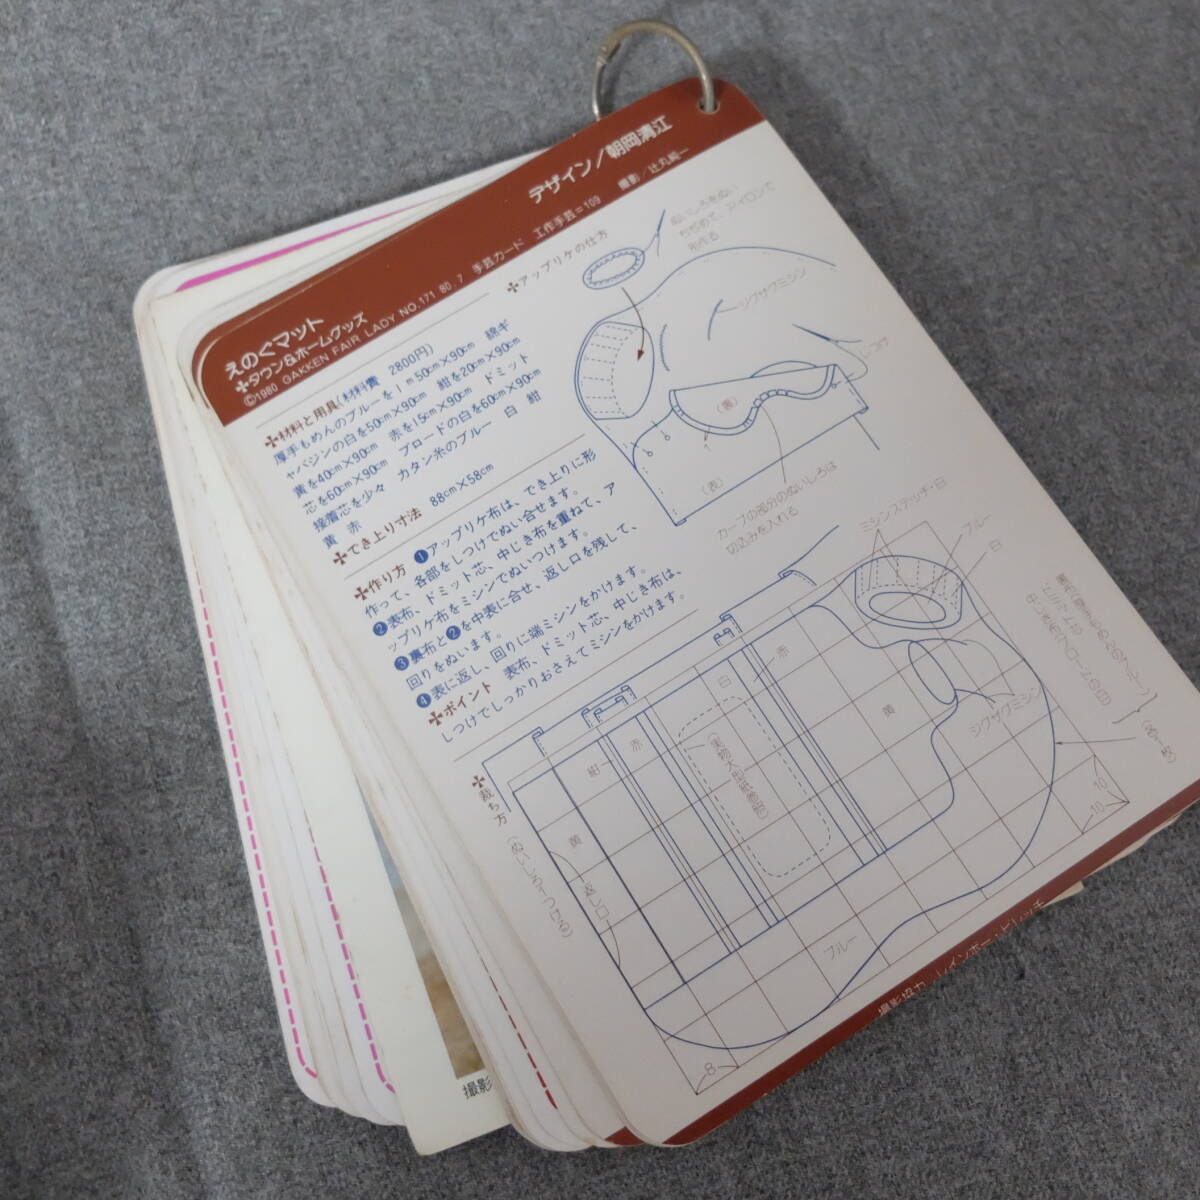 えのぐマット
✚タウン&ホームグッズ
©1980 GAKKEN FAIR LADY NO.171 80.7 手芸カード 工作手芸=109 撮影/辻丸純一
デザイン/朝岡清江
✚材料と用具(材料費 2800円)
厚手もめんのブルーを1m50cm×90cm 綿ギ
ャバジンの白を50cm×90cm 紺を20cm×90cm
黄を40cm×90cm 赤を15cm×90cm ドミット
芯を60cm×90cm ブロードの白を60cm×90cm
接着芯を少々 カタン糸のブルー 白 紺
黄 赤
✚でき上り寸法 88cm×58cm
✚作り方 ❶アップリケ布は、でき上りに形
作って、各部をしつけでぬい合せます。
❷表布、ドミット芯、中じき布を重ねて、ア
ップリケ布をミシンでぬいつけます。
❸裏布と❷を中表に合せ、返し口を残して、
回りをぬいます。
❹表に返し、回りに端ミシンをかけます。
✚ポイント 表布、ドミット芯、中じき布は、
しつけでしっかりおさえてミシンをかけます。
✚アップリケの仕方
ぬいしろをぬい
ちぢめて、アイロンで
形作る
ジグザグミシン
しつけ
(表)
(表)
カーブの部分のぬいしろは
切込みを入れる
✚裁ち方
(ぬいしろ1つける)
ミシンステッチ・白
ブルー
白
赤
白
赤
紺
黄
黄
返し口
(実物大型紙裏面)
ジグザグミシン
ブルー
(各1枚)
10
10
8
撮影協力 レインボー・ビレッヂ
撮影